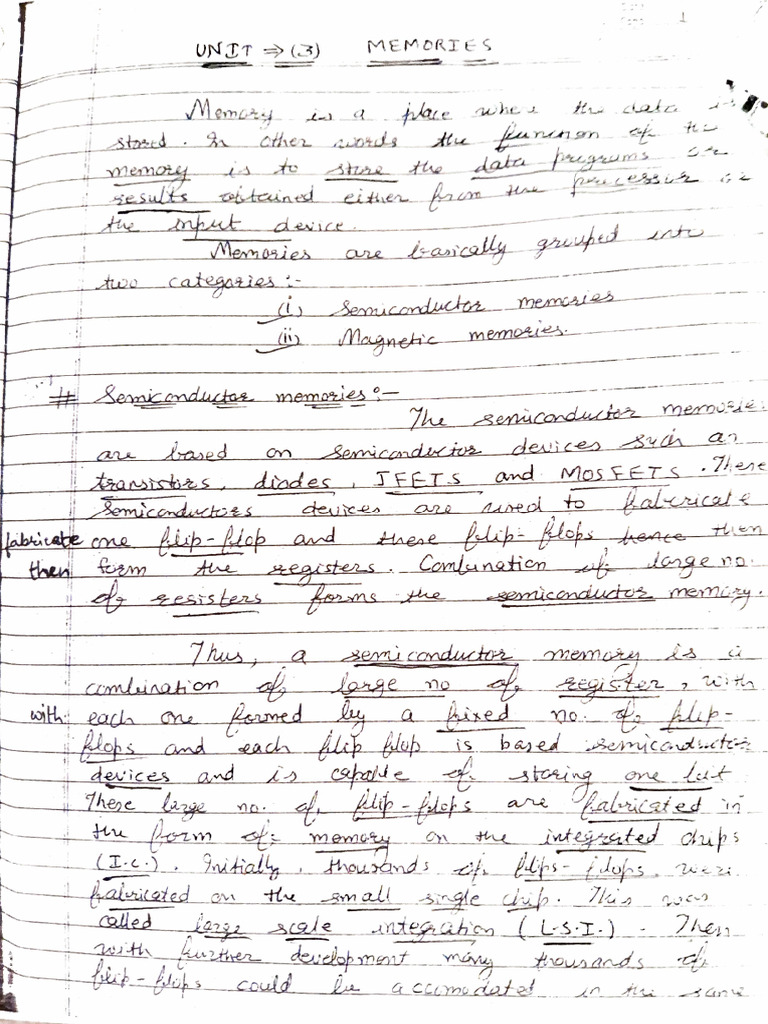 1
UNIT ⇒ (3) MEMORIES
Memory is a place where the data is
stored. In other words the function of the
memory is to store the data programs or
results obtained either from the processor or
the input device.
Memories are basically grouped into
two categories :-
(i) Semiconductor memories
(ii) Magnetic memories.
# Semiconductor memories :-
The semiconductor memories
are based on semiconductor devices such as
transistors, diodes, JFETS and MOSFETS. These
semiconductors devices are used to fabricate
fabricate one flip-flop and these flip-flops hence then
then form the registers. Combination of large no.
of resisters forms the semiconductor memory.
Thus, a semiconductor memory is a
combination of large no of register, with
with each one formed by a fixed no. of flip-
flops and each flip flop is based semiconductor
devices and is capable of storing one bit.
These large no. of flip-flops are fabricated in
the form of memory on the integrated chips
(I.C.). Initially, thousands of flips-flops, were
fabricated on the small single chip. This was
called large scale integration (L.S.I.). Then
with further development many thousands of
flip-flops could be accomodated in the same